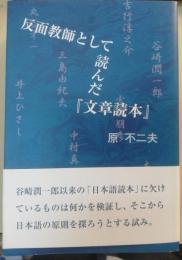 反面教師として
読んだ
『文章読本』
原 不二夫
谷崎潤一郎
吉行淳之介
三島由紀夫
中村真
井上ひさし
丸
谷崎潤一郎以来の「日本語読本」に欠けているものは何かを検証し、そこから日本語の原則を探ろうとする試み。